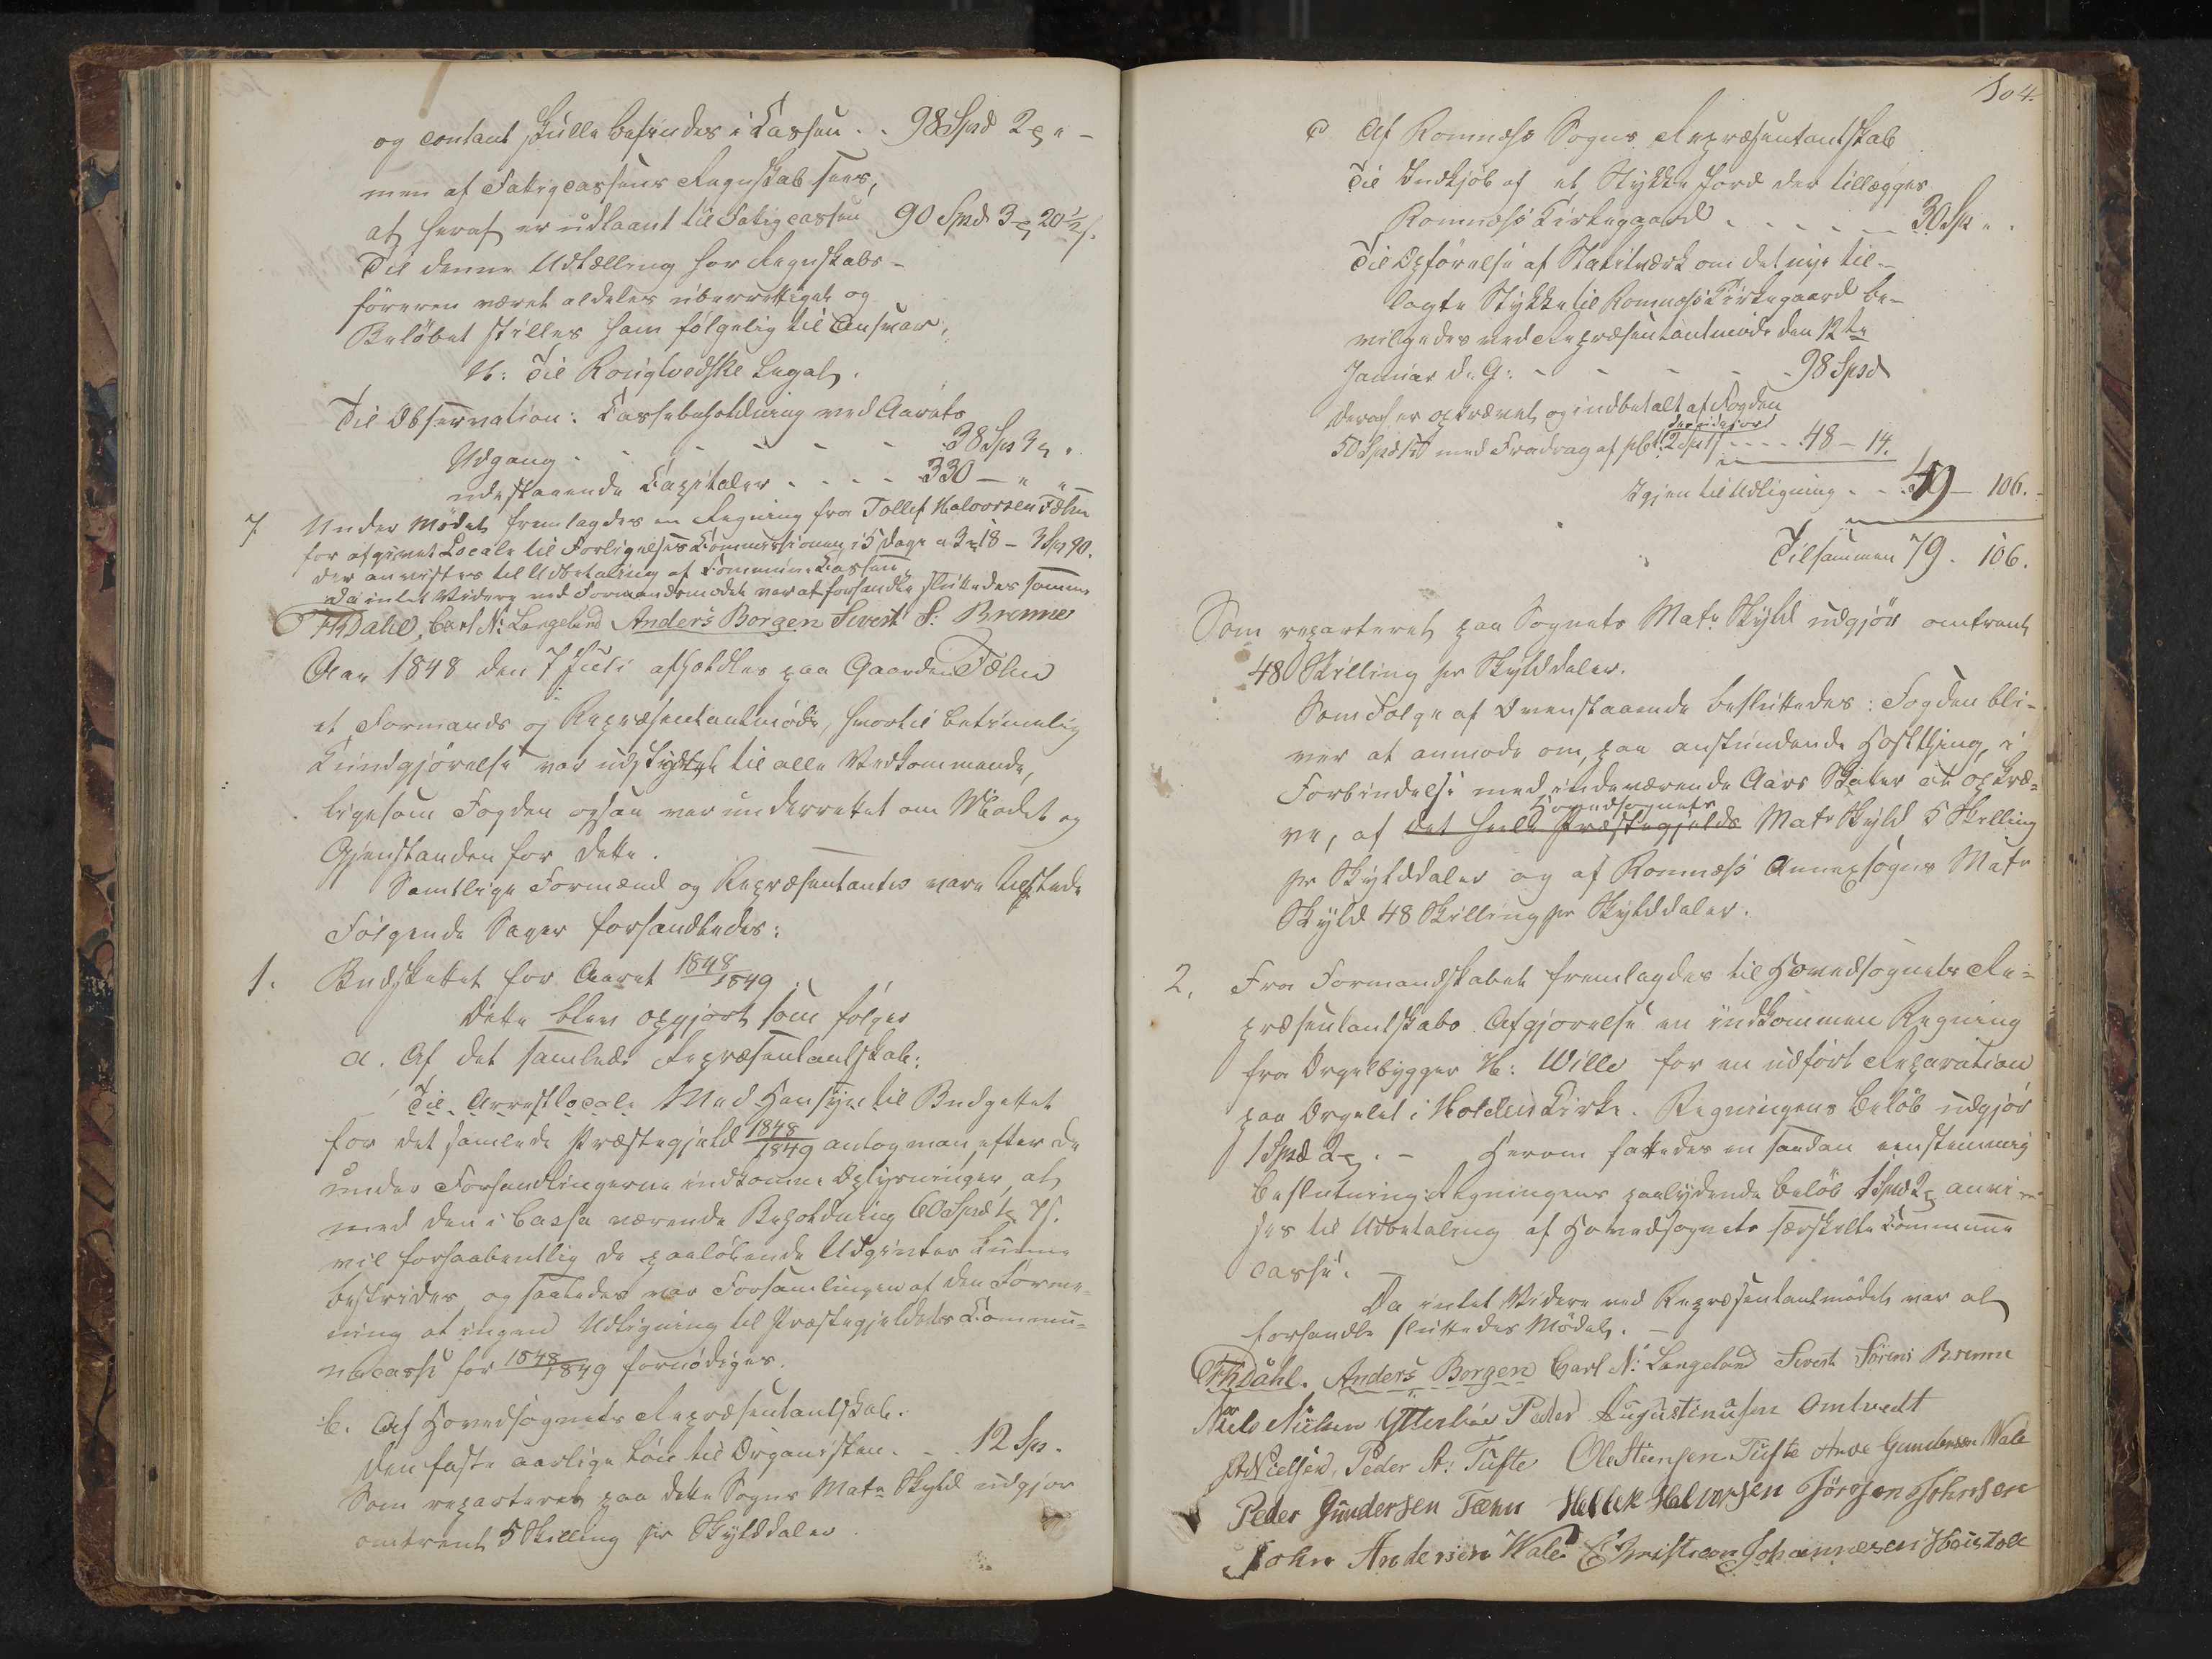 og contant skulle befindes i Cassen . . 98 Spd 2 " -
men af Fattigcassens Regnskab sees,
at heraf er udlaant til Fattigcassen 90 Spd 3 20½ s.
Til denne Udtælling har Regnskabs-
føreren været aldeles uberettiget og
Beløbet stilles ham følgelig til Ansvar.
N: Til Legat.
Til Observation: Cassebeholdning ved Aarets
Udgang . - - - - - 38 Sp 3 "
udestaaende Capitaler . . . . 330 — " "
7 Under Mødet fremlagdes en Regning fra Tollef Halvorsen Fæhn
for afgivet Locale til Forligelses Commissionen i 5 Dage a 3 18 - 3 Sp 90.
der anvistes til Udbetaling af Communecassen.
Da intet Videre ved Formandsmødet var at forhandle sluttedes samme
FhDahl, Carl N: Langeland Anders Borgen Sivert S: Brenne
Aar 1848 den 7 Juli afholdtes paa Gaarden Fæhn
et Formands og Repræsentantmøde, hvortil betimelig
Kundgjørelse var udstedt til alle Vedkommende,
ligesom Fogden ogsaa var underrettet om Mødet og
Gjenstanden for dette.
Samtlige Formænd og Repræsentanter vare tilstede
Følgende Sager forhandledes:
1. Budskettet for Aaret 1848/1849.
Dette blev opgjort som følger
a. Af det samlede Repræsentantskab:
Til Arrestlocale Med Hensyn til Budgettet
for det samlede Præstegjeld 1848/1849 antog man efter de
under Forhandlingerne indkomne Oplysninger, at
med den i Cassa værende Beholdning 60 Spd 1 7 s.
vil forhaabentlig de paaløbende Udgifter kunne
bestrides og saaledes var Forsamlingen af den Forme-
ning at ingen Udligning til Præstegjeldets Commu-
necasse for 1848/1849 fornødiges.
b. Af Hovedsognets Repræsentantskab.
Den faste aarlige Løn til Organisten. - . 12 Sp.
Som reparteret paa dette Sogns Matr Skyld udgjør
omtrent 5 Skilling pr Skylddaler.
104.
c Af Romnæs Sogns Repræsentantskab
Til Indkjøb af et Stykke Jord der tillægges
Romnæs Kirkegaard . . . . . . 30 Sp "
Til Opførelse af Stakitværk om det nye til-
lagte Stykke til Romnæs Kirkegaard be-
vilgedes ved Repræsentantmøde den 12te
Januar d. A: - - - - - 98 Spd
Deraf er opkrævet og indbetalt af Fogden
50 Spd med Fradrag af 2 Sp . . . . 48 — 14.
Igjen til Udligning . . . 49 — 106.
Tilsammen 79. 106.
Som reparteret paa Sognets Matr Skyld udgjør omtrent
48 Skilling pr Skylddaler.
Som Følge af Ovenstaaende besluttedes: Fogden bli-
ver at anmode om, paa anstundende Høstthing, i
Forbindelse med indeværende Aars Skatter at opkræ-
Hovedsognets
ve, af det hele Præstegjelds Matr Skyld 5 Skilling
pr Skylddaler og af Romnæs Annexsogns Matr
Skyld 48 Skilling pr Skylddaler.
2. Fra Formandskabet fremlagdes til Hovedsognets Re-
præsentantskabs Afgjørelse en indkommen Regning
fra Orgelbygger H: Wille for en udført Reparation
paa Orgelet i Holden Kirke. Regningens Beløb udgjør
1 Spd 2 . - Herom fattedes en saadan eenstemmig
Beslutning: Regningens paalydende Beløb 1 Spd 2 anvi-
ses til Udbetaling af Hovedsognets særskilte Commune
Casse. —
Da intet Videre ved Repræsentantmødet var at
forhandle sluttedes Mødet. —
FhDahl. Anders Borgen Carl N: Langeland Sivert Sørens Brenne
Niels Nielsen Ytterbøe Peder Augustinusen Omtvedt
Nielsen, Peder A: Tufte Ole Steensen Tufte Aase Gundersen Wale
Peder Gundersen Fæhn Hellek Halvorsen Jørgen Johnsen
John Andersen Wale Christian Johannesen Hoistole